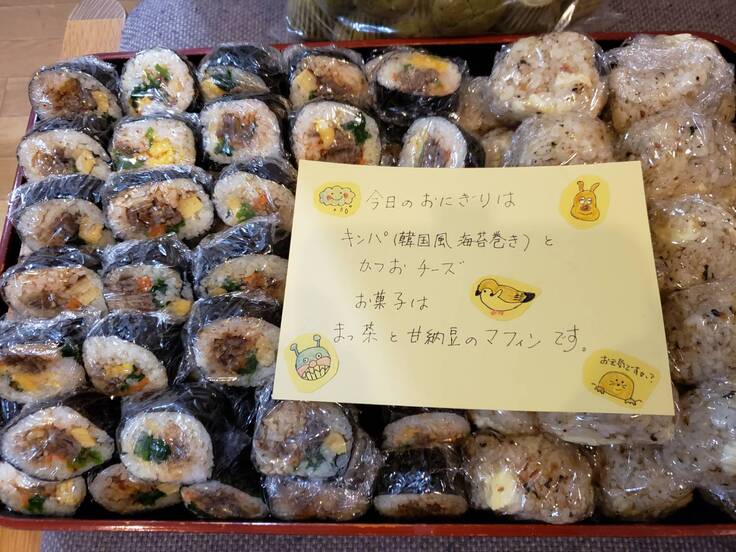 今日のおにぎりは
キンパ(韓国風海苔巻き)と
かつおチーズ
お菓子は
まっ茶と甘納豆のマフィンです。
お元気ですかー?